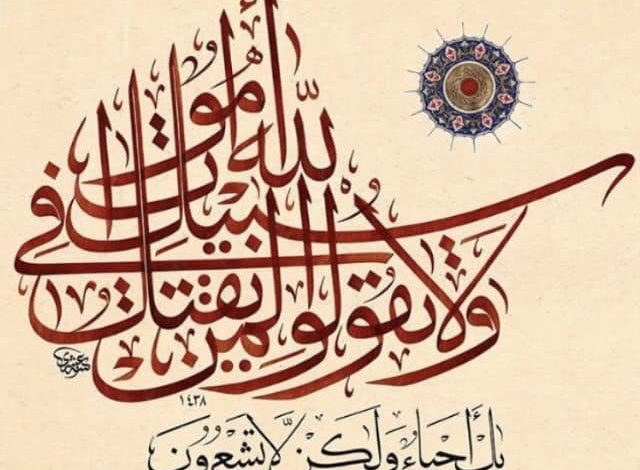 ولا تقولوا لمن يقتل في
سبيل الله أموات
١٤٣٨
بل أحياء ولكن لا تشعرون